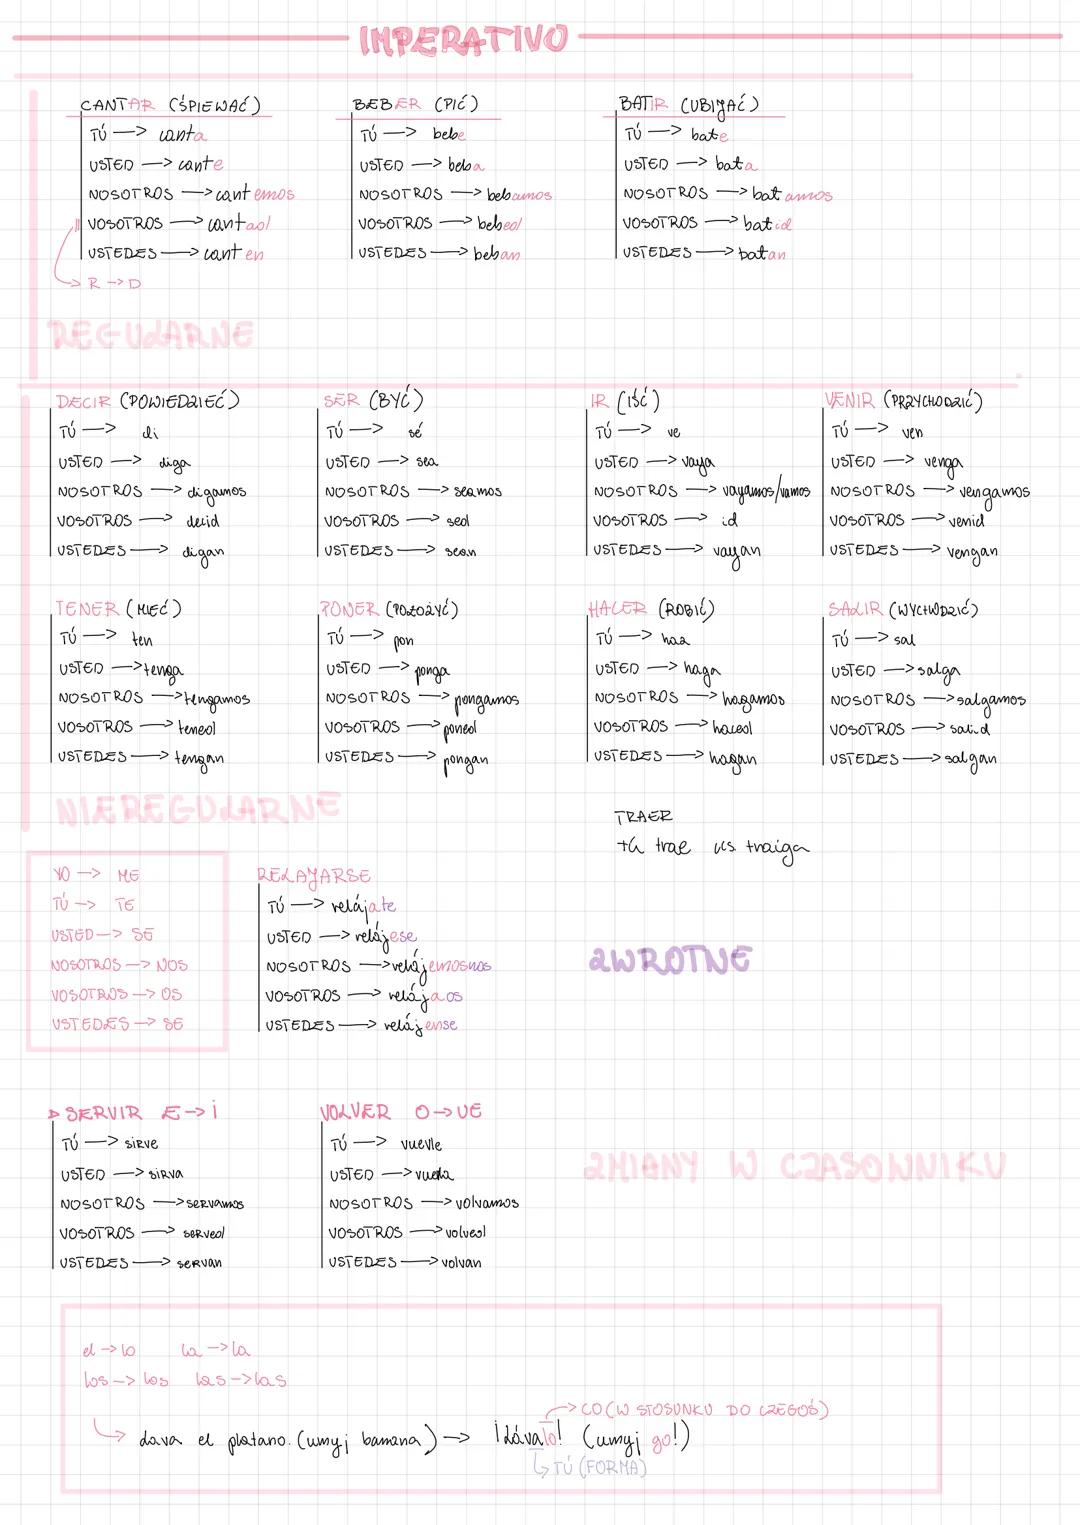 IMPERATIVO
CANTAR (ŚPIEWAĆ)
TÚ → canta
USTED → cante
NOSOTROS → cantemos
VOSOTROS → cantad
USTEDES → canten
R → D
BEBER (PIĆ)
TÚ → bebe
USTED → beba
NOSOTROS → bebamos
VOSOTROS → bebed
USTEDES → beban
BATIR (UBIJAĆ)
TÚ → bate
USTED → bata
NOSOTROS → batamos
VOSOTROS → batid
USTEDES → batan
REGULARNE
DECIR (POWIEDZIEĆ)
TÚ → di
USTED → diga
NOSOTROS → digamos
VOSOTROS → decid
USTEDES → digan
SER (BYĆ)
TÚ → sé
USTED → sea
NOSOTROS → seamos
VOSOTROS → sed
USTEDES → sean
IR (IŚĆ)
TÚ → ve
USTED → vaya
NOSOTROS → vayamos/vamos
VOSOTROS → id
USTEDES → vayan
VENIR (PRZYCHODZIĆ)
TÚ → ven
USTED → venga
NOSOTROS → vengamos
VOSOTROS → venid
USTEDES → vengan
TENER (MIEĆ)
TÚ → ten
USTED → tenga
NOSOTROS → tengamos
VOSOTROS → tened
USTEDES → tengan
PONER (POŁOŻYĆ)
TÚ → pon
USTED → ponga
NOSOTROS → pongamos
VOSOTROS → poned
USTEDES → pongan
HACER (ROBIĆ)
TÚ → haz
USTED → haga
NOSOTROS → hagamos
VOSOTROS → haced
USTEDES → hagan
SALIR (WYCHODZIĆ)
TÚ → sal
USTED → salga
NOSOTROS → salgamos
VOSOTROS → salid
USTEDES → salgan
NIEREGULARNE
TRAER
tú trae us. traiga
YO → ME
TÚ → TE
USTED → SE
NOSOTROS → NOS
VOSOTROS → OS
USTEDES → SE
RELAJARSE
TÚ → relájate
USTED → relájese
NOSOTROS → relájemosnos
VOSOTROS → relájaos
USTEDES → relájense
ZWROTNE
SERVIR E → i
TÚ → sirve
USTED → sirva
NOSOTROS → servamos
VOSOTROS → served
USTEDES → servan
VOLVER O → UE
TÚ → vuevle
USTED →
NOSOTROS → volvamos
VOSOTROS → volved
USTEDES → volvan
ZMIANY W CZASOWNIKU
el → lo la → la
los → los las → las
CO (W STOSUNKU DO CZEGOŚ)
dava el platano. (umyj banana) → ¡dávalo! (umyj go!)
TÚ (FORMA)